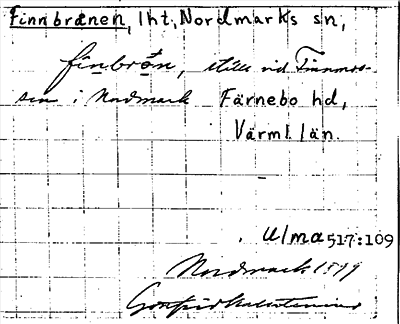 Finnbränen, lht, Nordmarks sn,
finbrǻn, ställe vid Finnmos-
sen i Nordmark Färnebo hd,
Värml. län.
Ulma 517:109
Nordmark 1899
Gottfrid Kallstenius